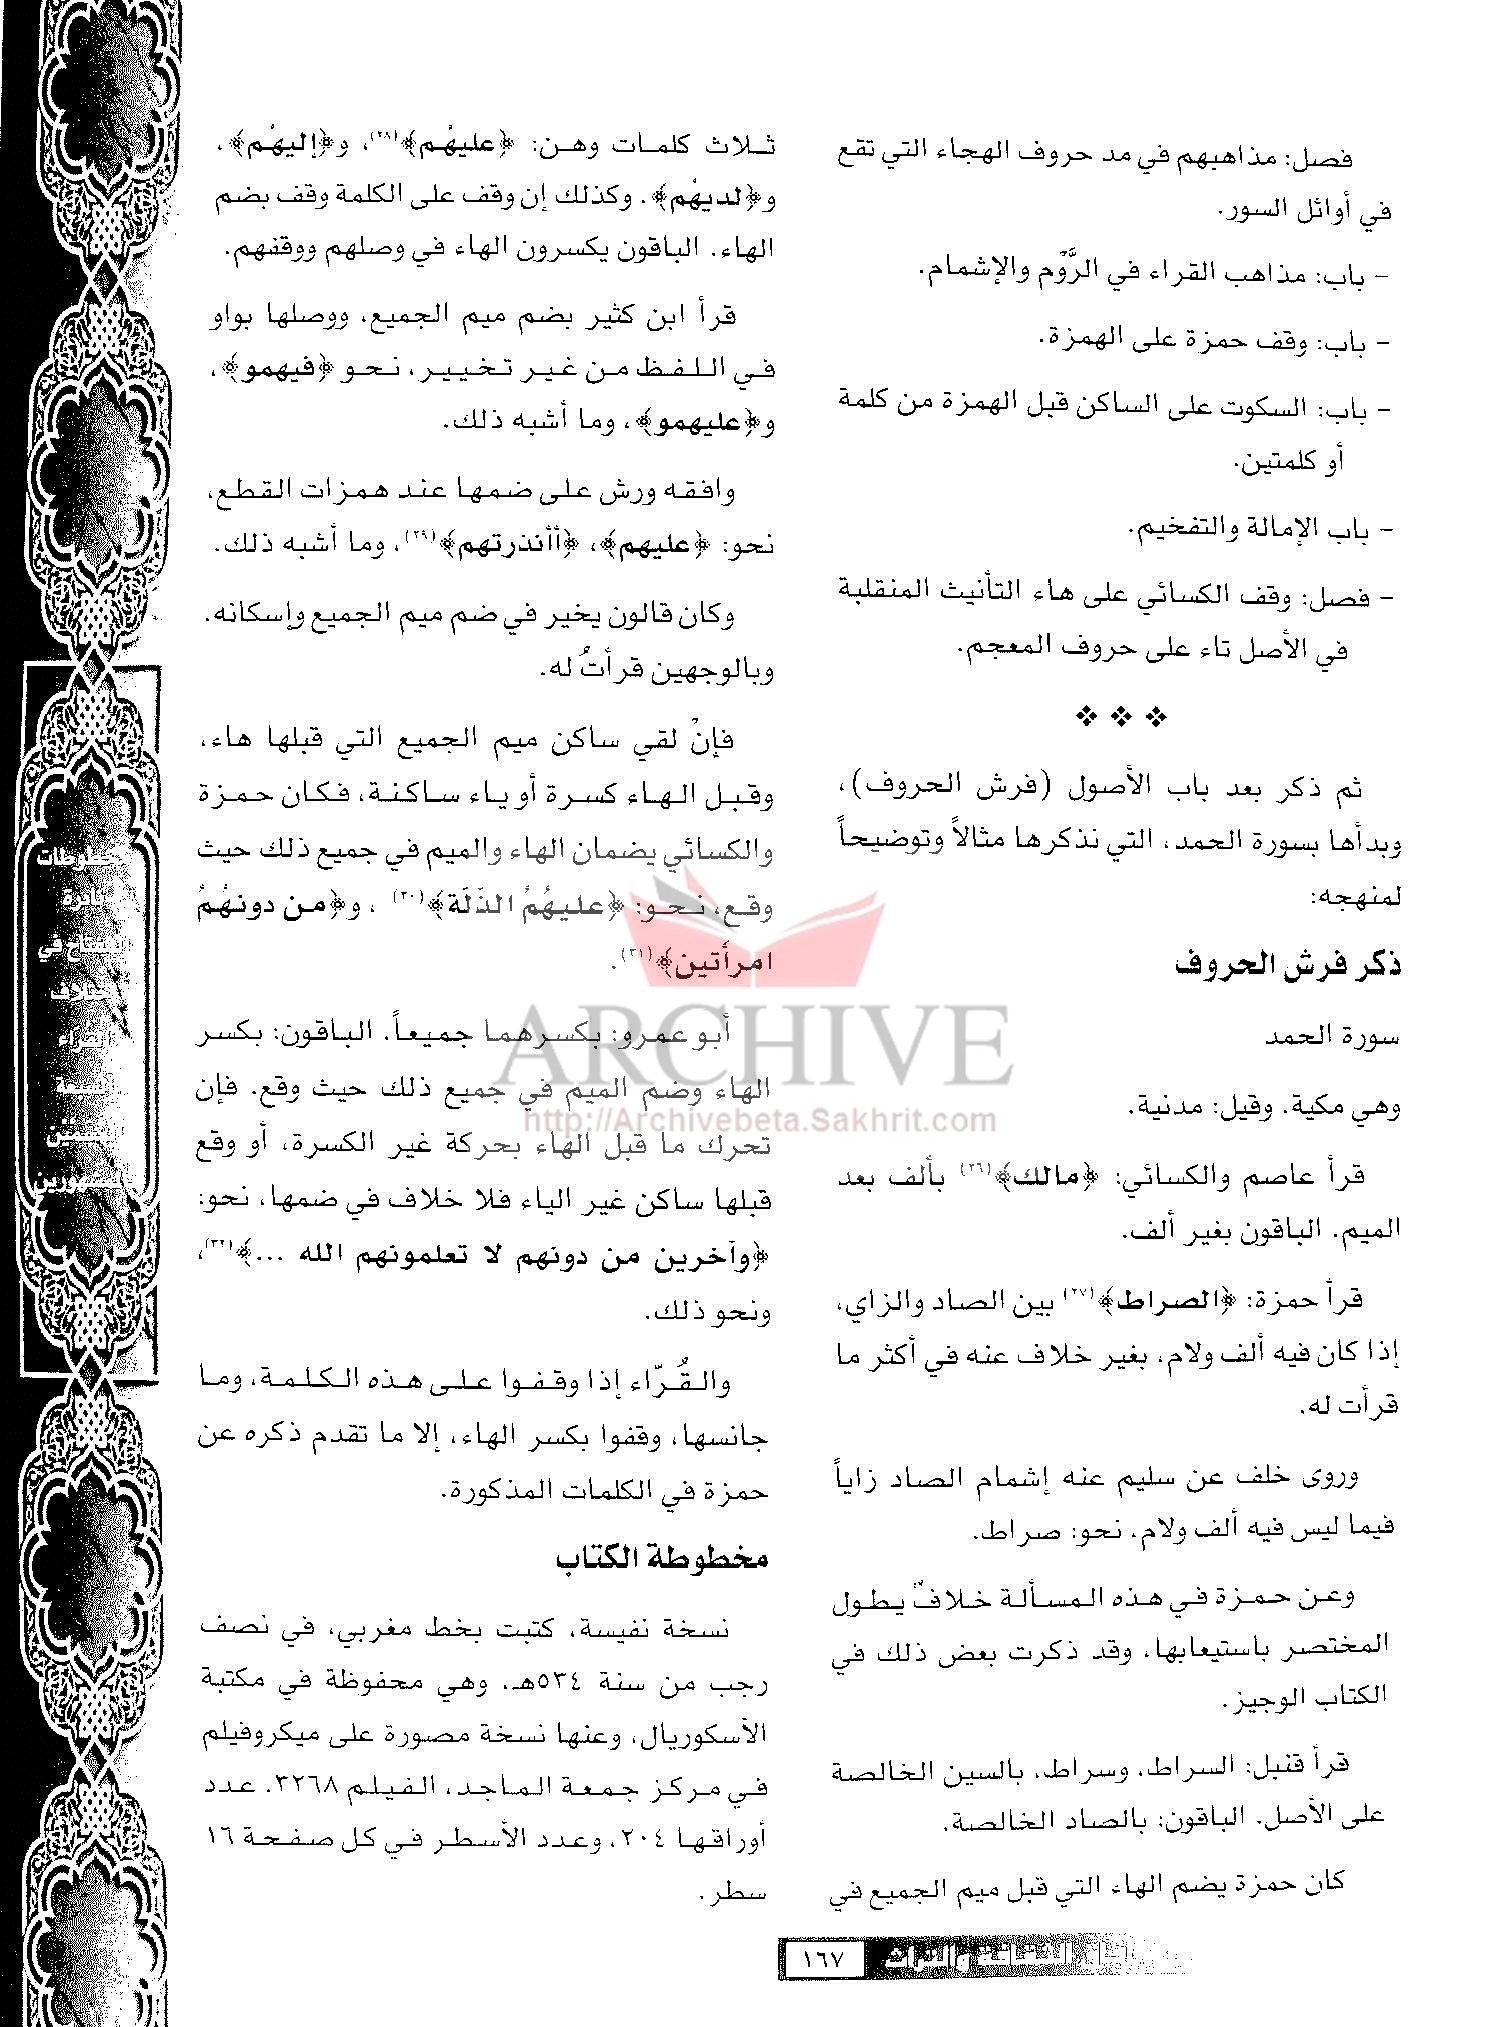 فصل: مذاهبهم في مد حروف الهجاء التي تقع
في أوائل السور.
- باب: مذاهب القراء في الرَّوْم والإشمام.
- باب: وقف حمزة على الهمزة.
- باب: السكوت على الساكن قبل الهمزة من كلمة
أو كلمتين.
- باب الإمالة والتفخيم.
- فصل: وقف الكسائي على هاء التأنيث المنقلبة
في الأصل تاء على حروف المعجم.
❖ ❖ ❖
ثم ذكر بعد باب الأصول (فرش الحروف)،
وبدأها بسورة الحمد، التي نذكرها مثالاً وتوضيحاً
لمنهجه:
ذكر فرش الحروف
سورة الحمد
وهي مكية. وقيل: مدنية.
قرأ عاصم والكسائي: ﴿مالك﴾(٢٦) بألف بعد
الميم. الباقون بغير ألف.
قرأ حمزة: ﴿الصراط﴾(٢٧) بين الصاد والزاي،
إذا كان فيه ألف ولام، بغير خلاف عنه في أكثر ما
قرأت له.
وروى خلف عن سليم عنه إشمام الصاد زاياً
فيما ليس فيه ألف ولام، نحو: صراط.
وعن حمزة في هذه المسألة خلافٌ يطول
المختصر باستيعابها، وقد ذكرت بعض ذلك في
الكتاب الوجيز.
قرأ قنبل: السراط، وسراط، بالسين الخالصة
على الأصل. الباقون: بالصاد الخالصة.
كان حمزة يضم الهاء التي قبل ميم الجميع في
ثلاث كلمات وهن: ﴿عليهُم﴾(٢٨)، و﴿إليهُم﴾،
و﴿لديهُم﴾. وكذلك إن وقف على الكلمة وقف بضم
الهاء. الباقون يكسرون الهاء في وصلهم ووقفهم.
قرأ ابن كثير بضم ميم الجميع، ووصلها بواو
في اللفظ من غير تخيير، نحو ﴿فيهمو﴾،
و﴿عليهمو﴾، وما أشبه ذلك.
وافقه ورش على ضمها عند همزات القطع،
نحو: ﴿عليهم﴾، ﴿أأنذرتهم﴾(٢٩)، وما أشبه ذلك.
وكان قالون يخير في ضم ميم الجميع وإسكانه.
وبالوجهين قرأتُ له.
فإنْ لقي ساكن ميم الجميع التي قبلها هاء،
وقبل الهاء كسرة أو ياء ساكنة، فكان حمزة
والكسائي يضمان الهاء والميم في جميع ذلك حيث
وقع، نحو: ﴿عليهُمُ الذلَة﴾(٣٠)، و﴿من دونهُمُ
امرأتين﴾(٣١).
أبو عمرو: بكسرهما جميعاً. الباقون: بكسر
الهاء وضم الميم في جميع ذلك حيث وقع. فإن
تحرك ما قبل الهاء بحركة غير الكسرة، أو وقع
قبلها ساكن غير الياء فلا خلاف في ضمها، نحو:
﴿وآخرين من دونهم لا تعلمونهم الله ...﴾(٣٢)،
ونحو ذلك.
والقُرّاء إذا وقفوا على هذه الكلمة، وما
جانسها، وقفوا بكسر الهاء، إلا ما تقدم ذكره عن
حمزة في الكلمات المذكورة.
مخطوطة الكتاب
نسخة نفيسة، كتبت بخط مغربي، في نصف
رجب من سنة ٥٣٤هـ، وهي محفوظة في مكتبة
الأسكوريال، وعنها نسخة مصورة على ميكروفيلم
في مركز جمعة الماجد، الفيلم ٣٢٦٨. عدد
أوراقها ٢٠٤، وعدد الأسطر في كل صفحة ١٦
سطر.
ARCHIVE
http://Archivebeta.Sakhrit.com
الثقافة والتراث ١٦٧